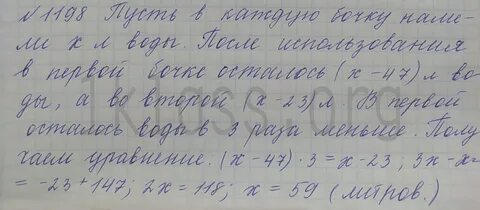 №1198 Пусть в каждую бочку нали-
ли x л воды. После использования
в первой бочке осталось (x-47) л во
ды, а во второй (x-23) л. В первой
осталось воды в 3 раза меньше. Полу
чаем уравнение. (x-47)·3=x-23; 3x-x=
=-23+147; 2x=118; x=59 (литров.)
1klass.org